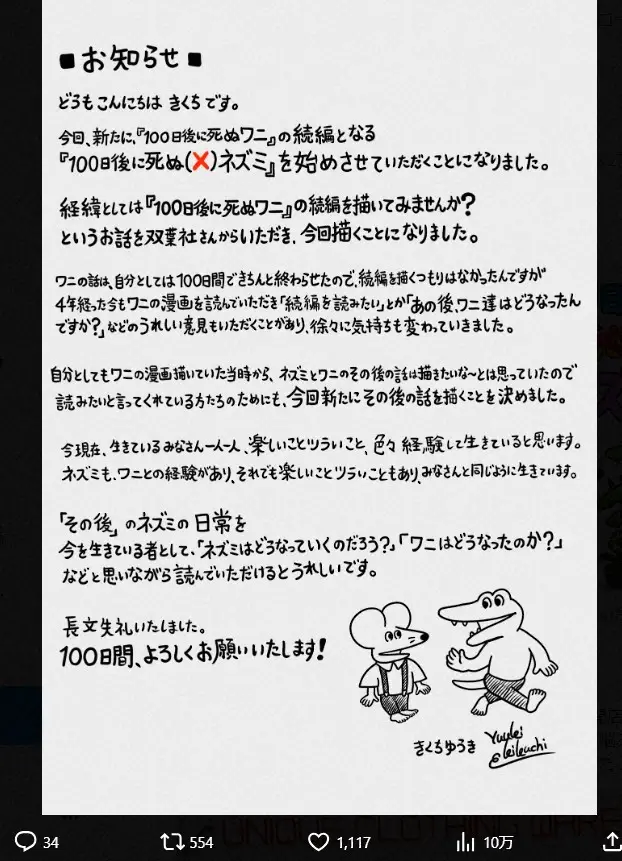 ■お知らせ■
どうもこんにちは きくちです。
今回、新たに、『100日後に死ぬワニ』の続編となる
『100日後に死ぬ(❌)ネズミ』を始めさせていただくことになりました。
経緯としては『100日後に死ぬワニ』の続編を描いてみませんか?
というお話を双葉社さんからいただき、今回描くことになりました。
ワニの話は、自分としては100日間できちんと終わらせたので、続編を描くつもりはなかったんですが
4年経った今もワニの漫画を読んでいただき「続編を読みたい」とか「あの後、ワニ達はどうなったん
ですか?」などのうれしい意見もいただくことがあり、徐々に気持ちも変わっていきました。
自分としてもワニの漫画描いていた当時から、ネズミとワニのその後の話は描きたいな〜とは思っていたので
読みたいと言ってくれている方たちのためにも、今回新たにその後の話を描くことを決めました。
今現在、生きているみなさん一人一人、楽しいことツラいこと、色々経験して生きていると思います。
ネズミも、ワニとの経験があり、それでも楽しいことツラいこともあり、みなさんと同じように生きています。
「その後」のネズミの日常を
今を生きている者として、「ネズミはどうなっていくのだろう?」「ワニはどうなったのか?」
などと思いながら読んでいただけるとうれしいです。
長文失礼いたしました。
100日間、よろしくお願いいたします!
きくちゆうき
Yuuki
Kikuchi
34 554 1,117 10万